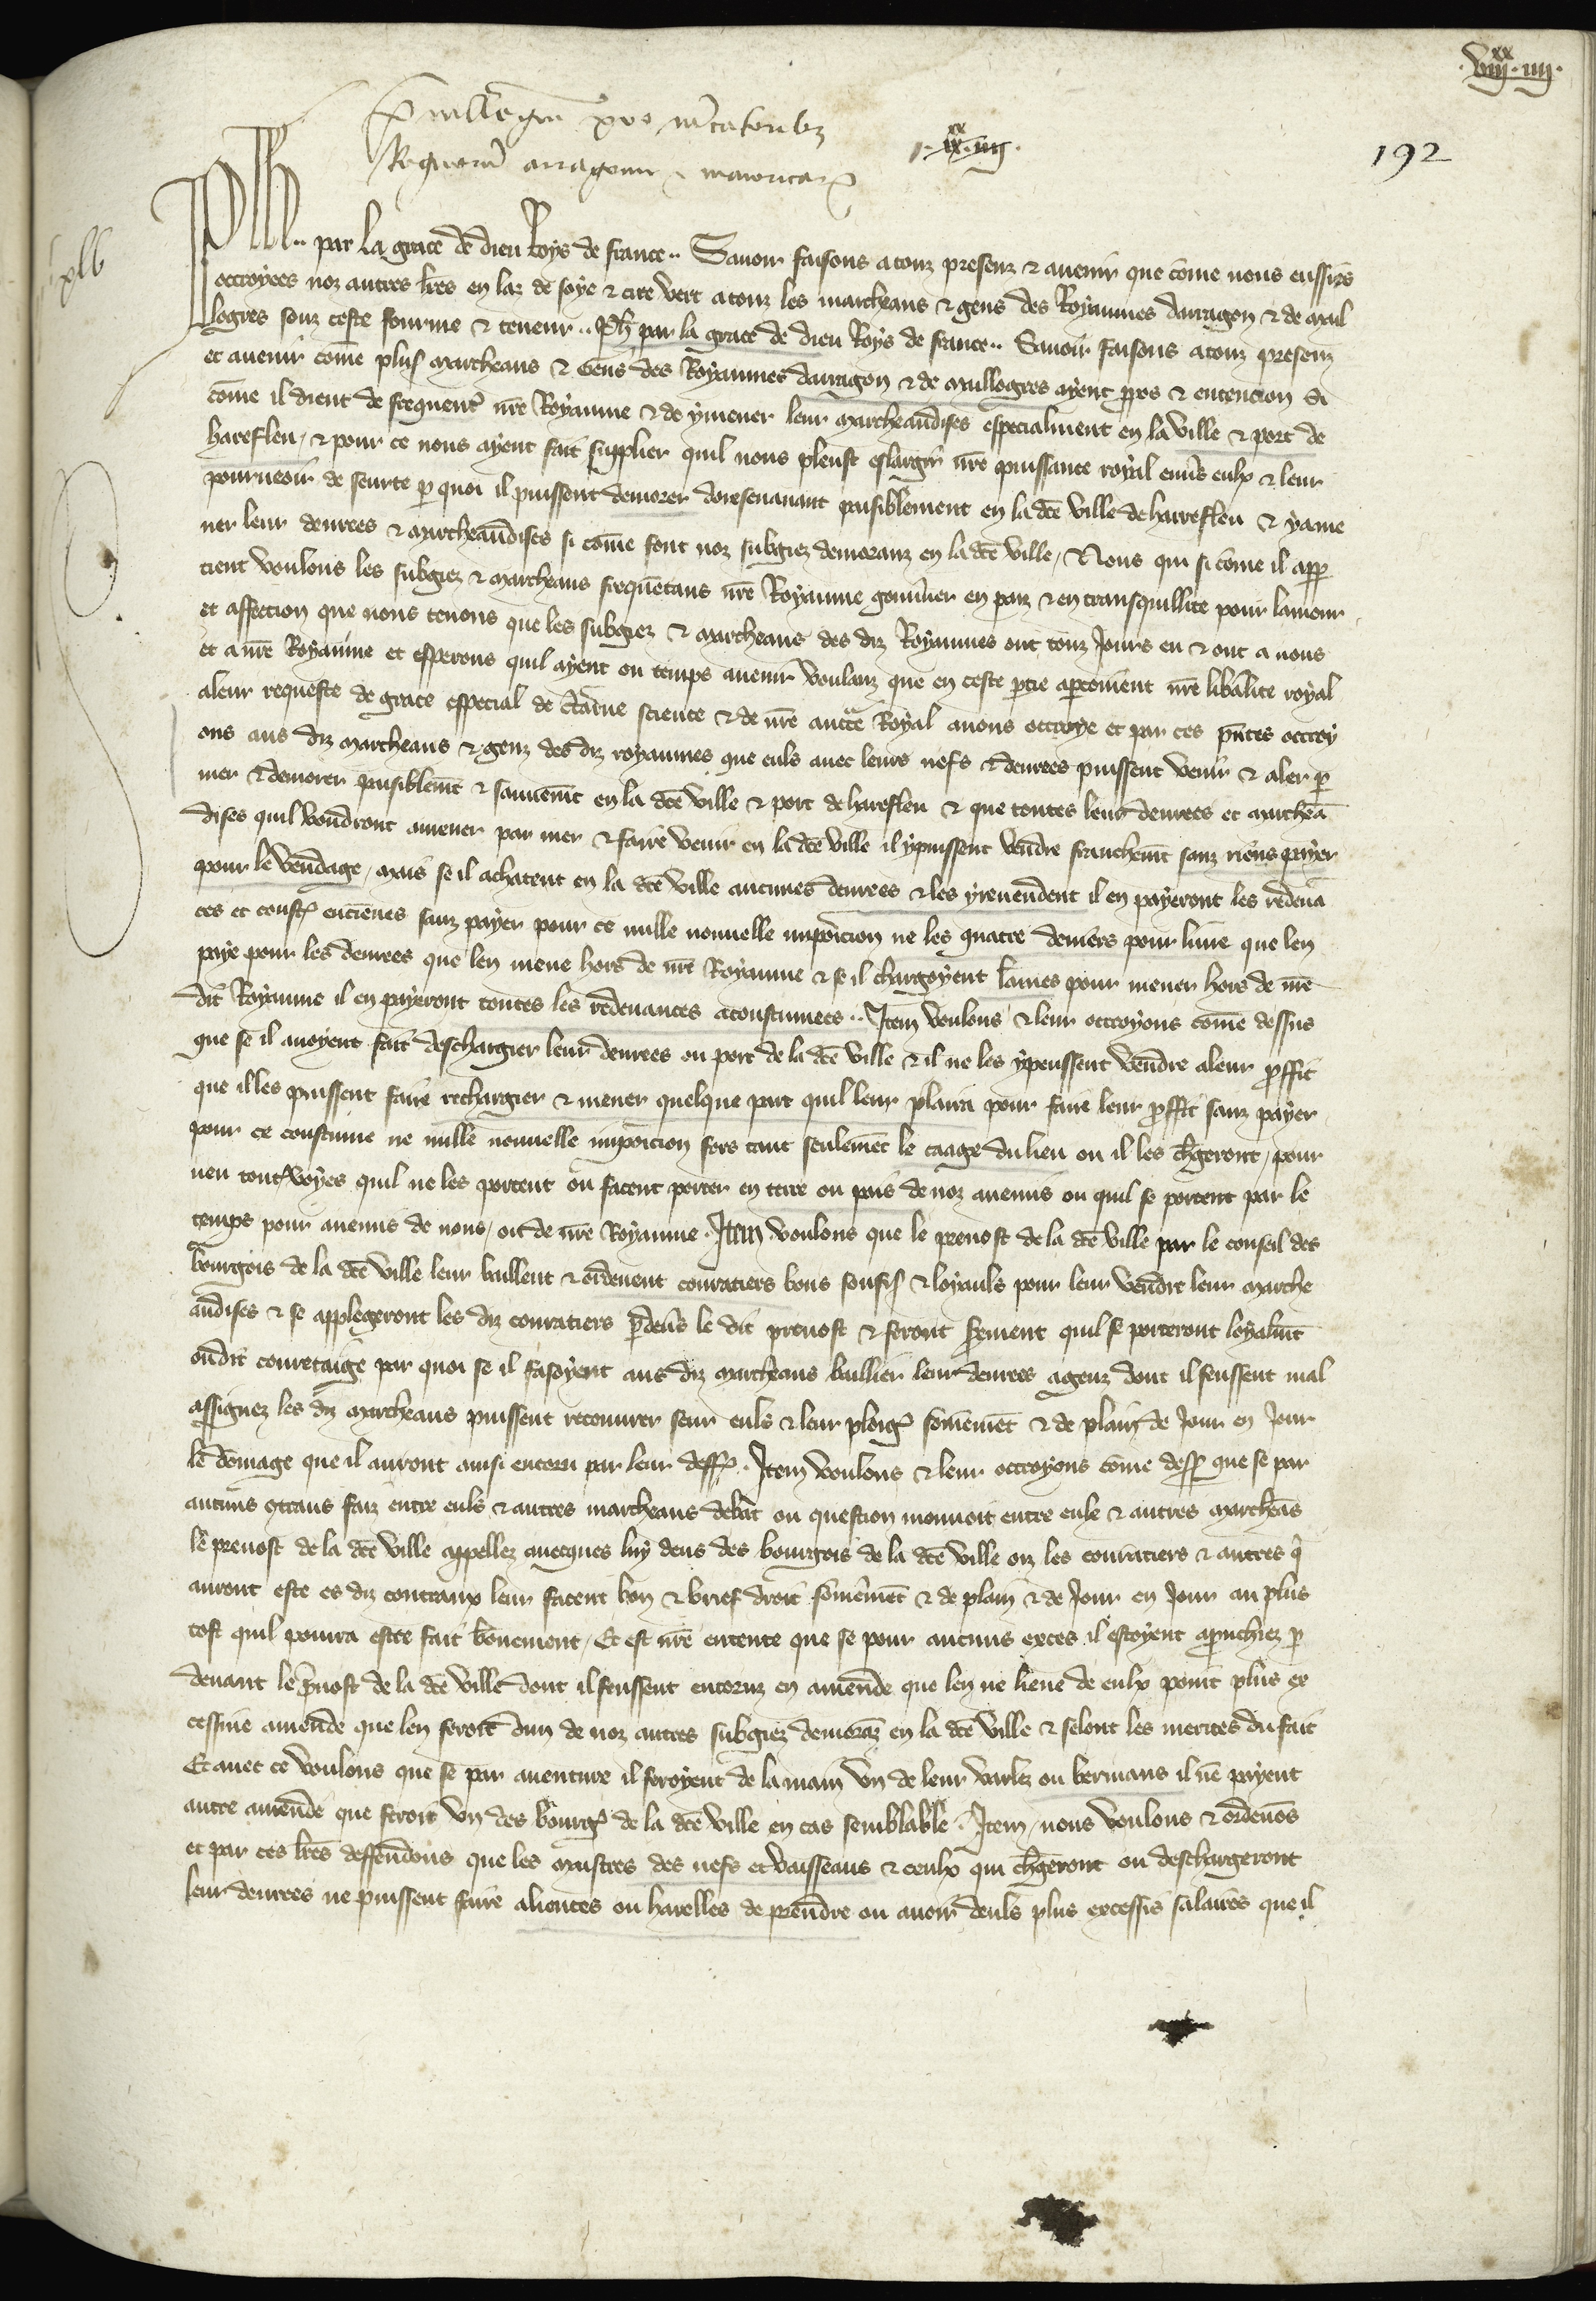 .viii.xx iiii.
Privilegium pro mercatoribus
Regnorum arragonie & maioricarum
192
xlv
Ph par la grace de dieu Roys de france .. Savoir faisons a touz presenz & avenir que come nous eussiens
octroyees noz autres lres en laz de soye & cire vert a touz les marcheans & gens des Royaumes darragon & de mail
logres souz ceste fourme & teneur .. Ph par la grace de dieu Roys de france .. Savoir faisons a touz presenz
et avenir come plus marcheans & Gens des Royaumes darragon & de maillogres ayent ppos & entencion si
come il dient de frequenter nre Royaume & de y mener leur marcheandises especialment en la ville & port de
harefleu / & pour ce nous ayent fait supplier quil nous pleust eslargir nre puissance royal envers eulx & leur
pourveoir de seurte p quoi il puissent demorer doresenavant paisiblement en la dce ville de harrefleu & y ame
ner leur denrees & marcheandises si come font noz subgiez demoranz en la dce ville / Nous qui si come il app
tient voulons les subgiez & marcheans frequentans nre Royaume gouverner en paiz & en transquillite pour lamour
et affection que nous tenons que les subgiez & marcheans des diz Royaumes ont touz Jours eu & ont a nous
et a nre Royaume et esperons quil ayent ou temps avenir voulanz que en ceste ptie apcoivent nre libalite royal
a leur requeste de grace especial de certaine science & de nre aucte Royal avons octroye et par ces pntes octroy
ons aus diz marcheans & genz des diz royaumes que euls avec leurs nefs & denrees puissent venir & aler p
mer & demorer paisiblemt & sauvemt en la dce ville & port de harefleu & que toutes leurs denrees et marchea
dises quil voudront amener par mer & faire venir en la dce ville il y puissent vendre franchemt sanz riens payer
pour le vendage / mais se il achatent en la dce ville aucunes denrees & les y revendent il en payeront les redeva
ces et coust encienes sanz payer pour ce nulle nouvelle imposicion ne les quatre deniers pour livre que len
paye pour les denrees que len mene hors de nre Royaume & se il chargoyent laines pour mener hors de nre
dit Royaume il en payeront toutes les redevances acoustumees .. Item voulons & leur octroyons come dessus
que se il avoyent fait deschargier leur denrees ou port de la dce ville & il ne les y peussent vendre a leur proffit
que il les puissent faire rechargier & mener quelque part quil leur plaira pour faire leur proffit sanz payer
pour ce coustume ne nulle nouvelle imposicion fors tant seulemt le caage du lieu ou il les chgeront / pour
veu toutevoyes quil ne les portent ou facent porter en terre ou pais de noz anemis ou quil se portent par le
temps pour anemis de nous / ou de nre Royaume . Item voulons que le prevost de la dce ville par le conseil des
bourgois de la dce ville leur baillent & ordenent couratiers bons souffis & loyauls pour leur vendre leur marche
andises & se applegeront les diz couratiers p devers le dit prevost & feront serement quil se porteront loyalmt
oudit couretaige par quoi se il fasoyent aus diz marcheans baillier leur denrees a genz dont il feussent mal
assignez les diz marcheans puissent recouvrer seur euls & leur pleig somemet & de plain de Jour en Jour
le domage que il auront ainsi encoru par leur deff . Item voulons & leur octroyons come dess que se par
aucuns contraus faiz entre euls & autres marcheans debat ou question mouvoit entre eulx & autres marcheans
le prevost de la dce ville appellez avecques luy deus des bourgois de la dce ville oiz les couratiers & autres qi
auront este es diz contraux leur facent bon & brief droit somemet & de plain & de Jour en Jour au plus
tost quil pourra estre fait bonement / Et est nre entente que se pour aucuns exces il estoyent aprouchiez p
devant le pvost de la dce ville dont il feussent encoruz en amende que len ne lieve de eulx point plus ex
cessive amende que len feroit dun de noz autres subgiez demoraz en la dce ville & selont les merites du fait
Et avec ce voulons que se par aventure il feroyent de la main un de leur varlez ou bermans il ne payent
autre amende que feroit un des bourg de la dce ville en cas semblable . Item / nous voulons & ordenos
et par ces lres deffendons que les maistres des nefs et vaisseaus & ceulx qui chgeront ou deschargeront
leur denrees ne puissent faire aliences ou harelles de prendre ou avoir deuls plus excessis salaires que il